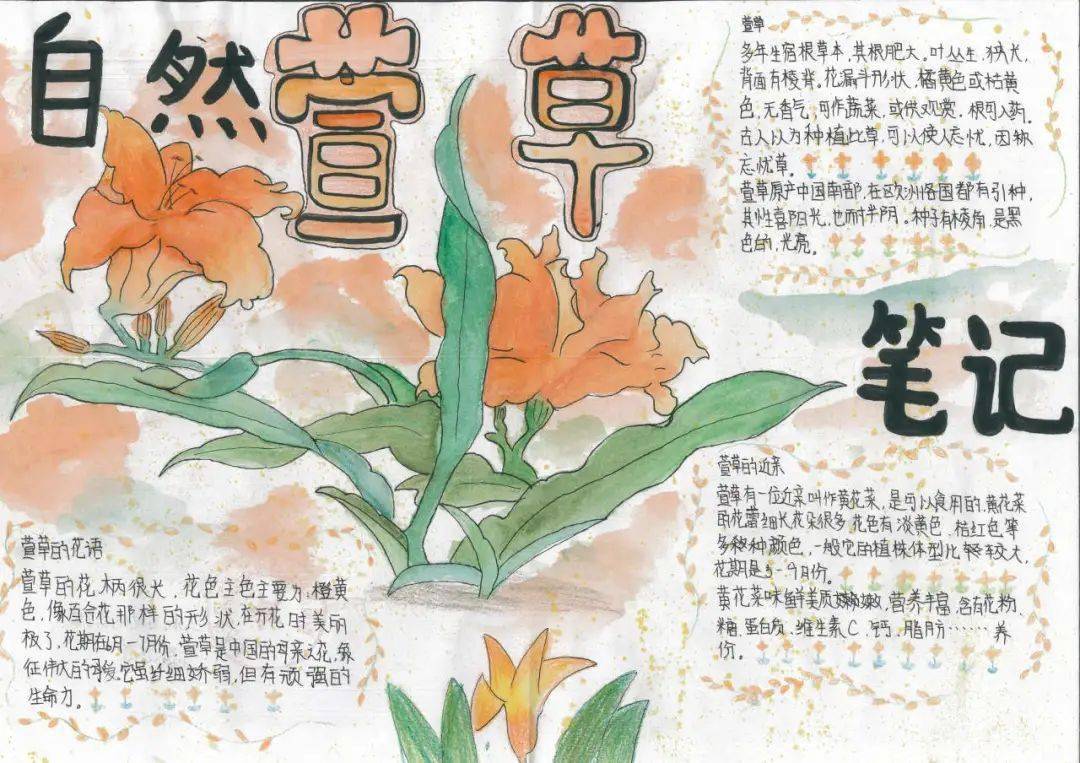 自然萱草
笔记
萱草
多年生宿根草本,其根肥大。叶丛生,狭长,
背面有棱脊。花漏斗形状,橘黄色或桔黄
色,无香气,可作蔬菜,或供观赏,根可入药。
古人以为种植此草,可以使人忘忧,因称
忘忧草。
萱草原产中国南部,在欧州各国都有引种,
其性喜阳光,也耐半阴。种子有棱角,是黑
色的,光亮。
萱草的近亲
萱草有一位近亲叫作黄花菜,是可以食用的,黄花菜
的花蕾细长花朵很多,花色有淡黄色、桔红色等
多种颜色,一般它的植株体型比较大,
花期是5-9月份。
黄花菜味鲜美质嫩,营养丰富,含有花粉、
糖、蛋白质、维生素C、钙、脂肪……养
份。
萱草的花语
萱草的花,柄很长,花色主色主要为:橙黄
色,像百合花那样的形状,在开花时美丽
极了,花期在月一月份,萱草是中国的母亲之花,象
征伟大的母爱,它虽纤细娇弱,但有顽强的
生命力。